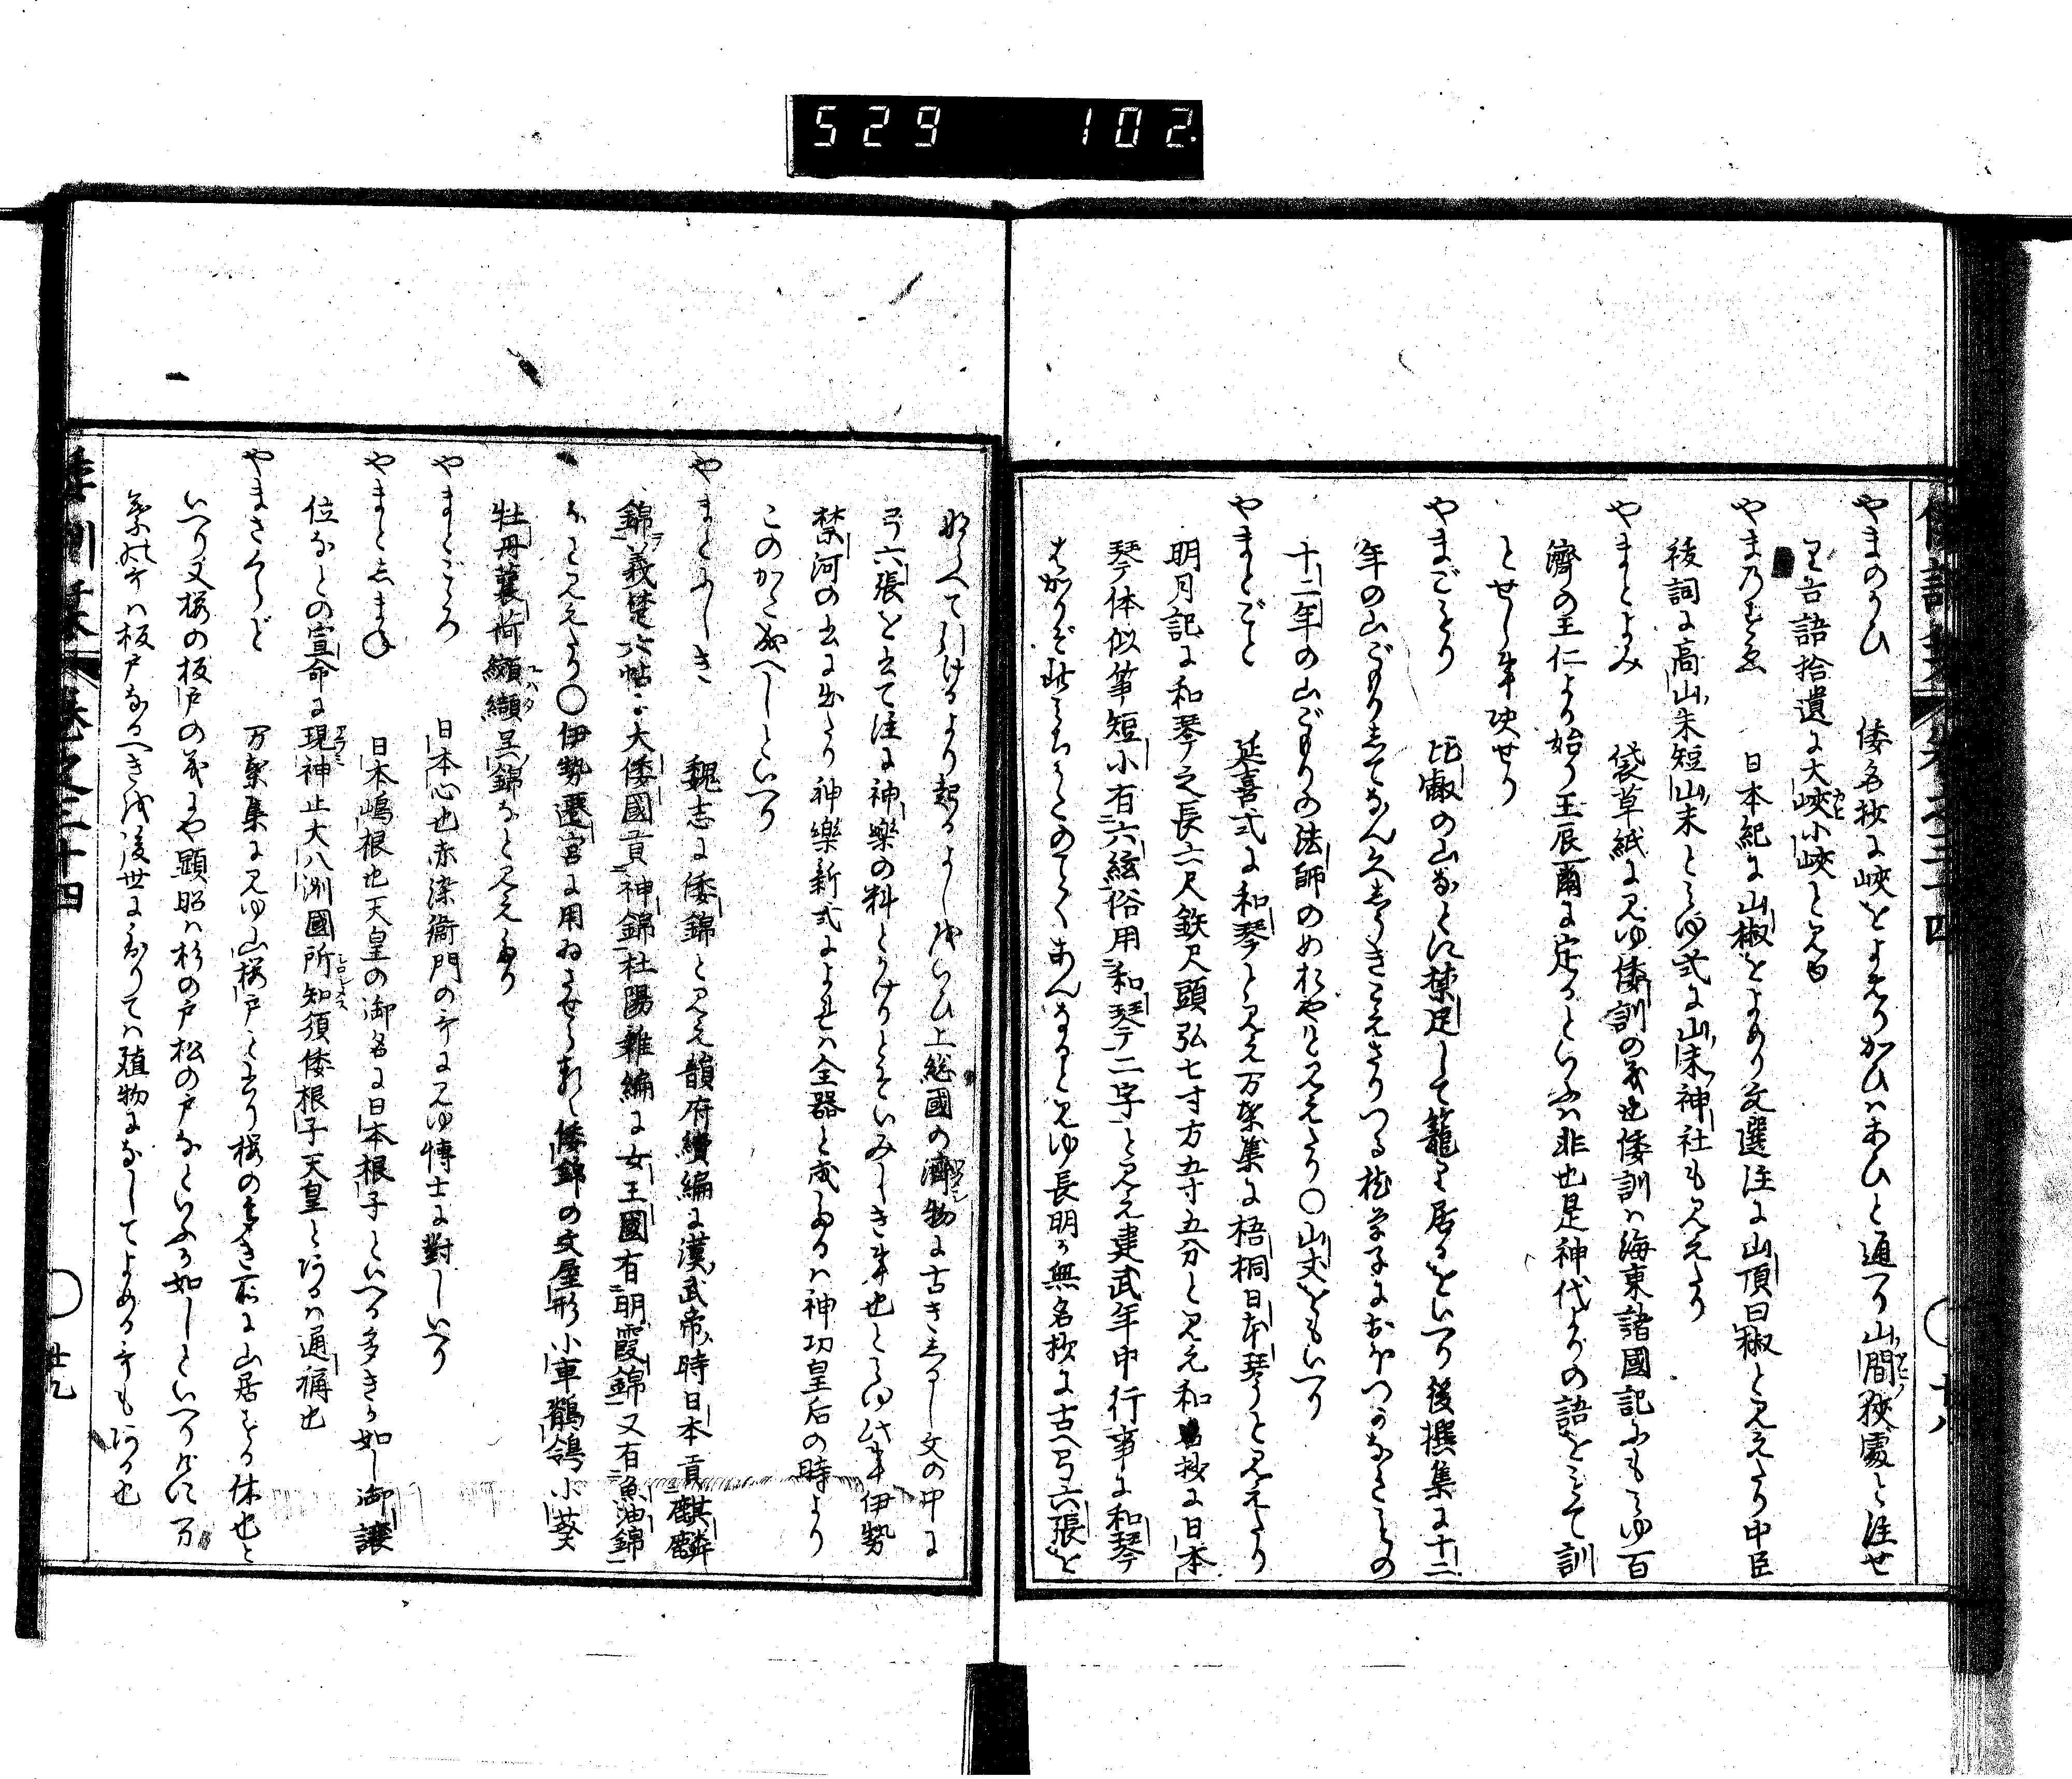 529 102
やまのかひ 倭名抄に峽をよめりかひはあひと通へり山間狹處と注せ
り古語拾遺に大峽小峽と見ゆ
やまのすゑ 日本紀に山椒をよめり文選注に山頂曰椒と見えたり中臣
後詞に高山末短山末とみゆ式に山末神社も見えたり
やまとよみ 袋草紙に見ゆ倭訓の義也倭訓は海東諸國記にもみゆ百
濟の王仁より始り王辰爾に定るといふは非也是神代よりの語をもて訓
とせし事決せり
やまごもり 比叡の山などに棲息して籠り居るをいへり後撰集に十二
年の山ごもりしてなん久しうきこえさりつる
十二年の山ごもりの法師のめれやと見えたり〇山丈をもいへり
やまとごと 延喜式に和琴と見え万葉集に梧桐日本琴と見えたり
明月記に和琴之長六尺鉄尺頭弘七寸方五寸五分と見え和名抄に日本
琴体似箏短小有六絃俗用和琴二字と見え建武年中行事に和琴
見ゆ長明か無名抄に古へ弓六張を
ならへて引けるより起るよしをいひ上総國の濟物に古きしるし文の中に
弓六張と出て注に神樂の料とかけりとそいみしき事也とみゆ此事伊勢
禁河の書に出たり神樂新式によれは全器と成たるは神功皇后の時より
このかた成へしといへり
やまとにしき 魏志に倭錦と見え韻府續編に漢武帝時日本貢麒麟
錦義楚六帖に大倭國貢神錦杜陽雜編に女王國有明霞錦又有魚油錦
なと見えたり〇伊勢遷宮に用ゐさせらるゝ倭錦の文屋形小車鶺鴒小葵
牡丹蘘荷纐纈呉錦なと見えたり
やまとごころ 日本心也赤染衞門の哥に見ゆ博士に對しいへり
やまとしまね 日本嶋根也天皇の御名に日本根子といへる多きか如し御讓
位なとの宣命に現神止大八洲國所知須倭根子天皇とあるは通稱也
やまさくらど 万葉集に見ゆ山櫻戸と書り櫻の多き所に山居する体也と
いへり又櫻の板戸の義にや顯昭は杉の戸松の戸なといふか如しといへりされと万
葉の哥は板戸なるへきを後世に至りては殖物になしてよめる哥もある也